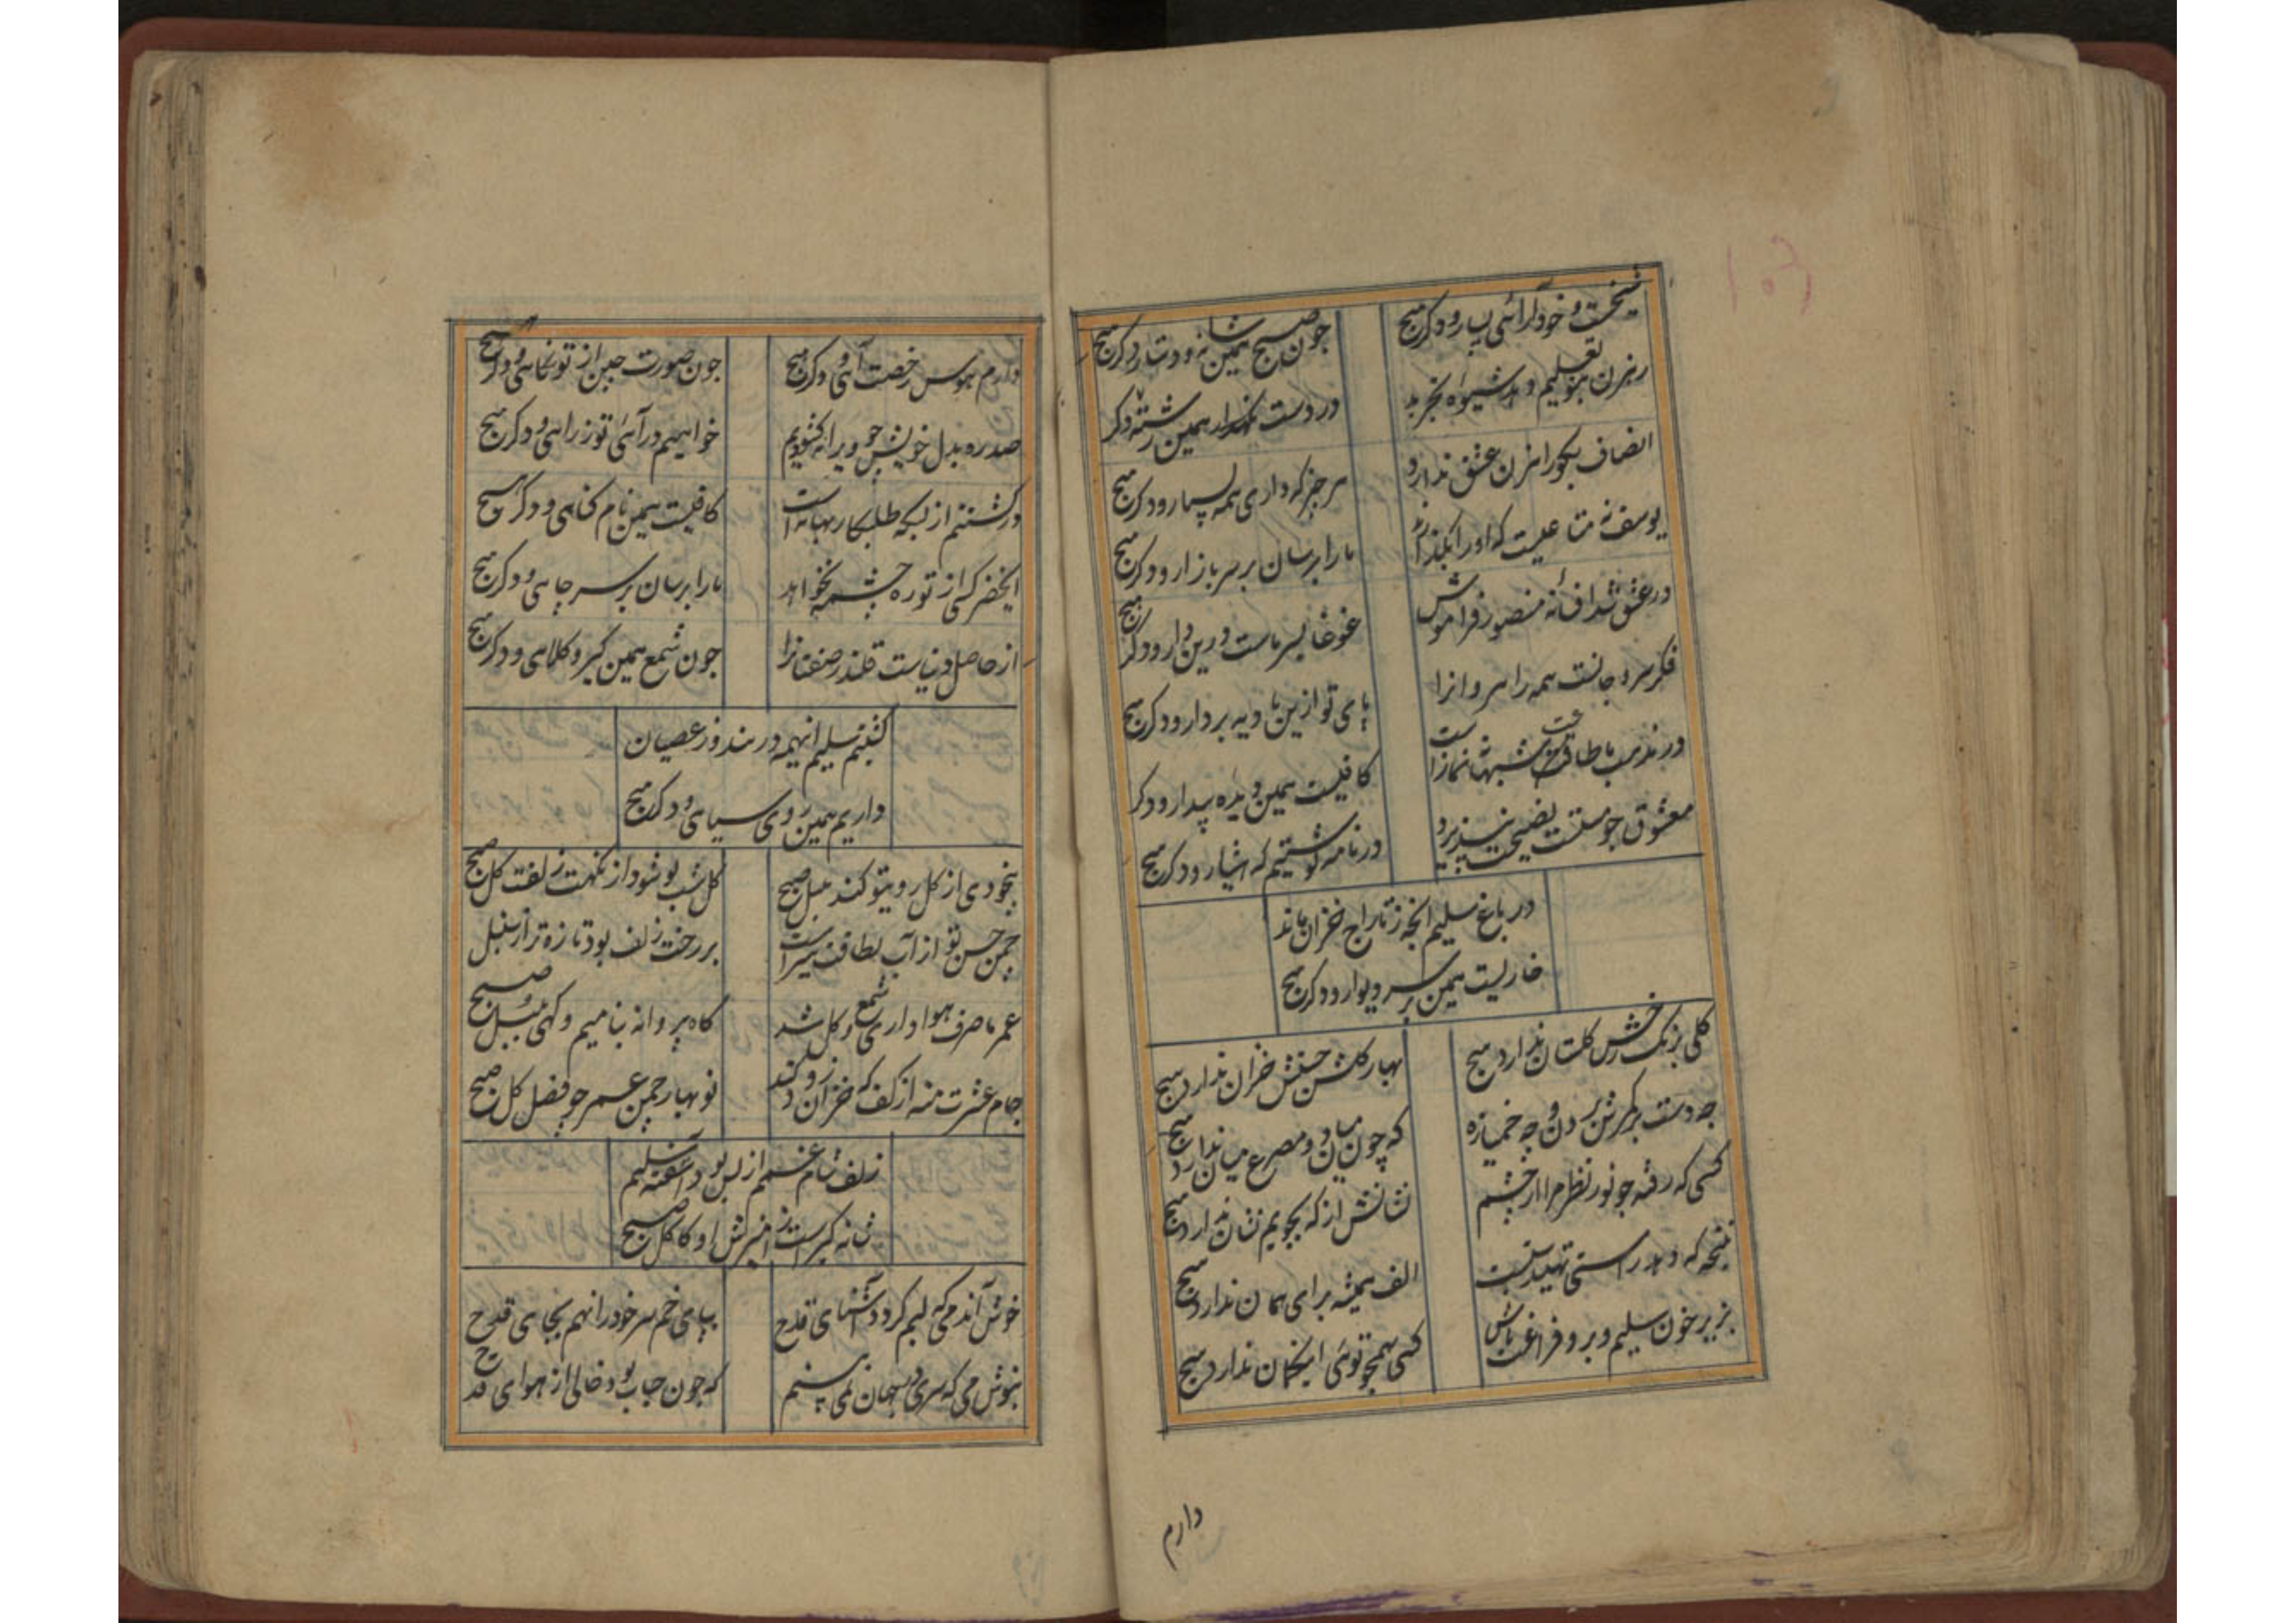 شیخست و خودآرائی بسیار و دکر هیچ
چون صبح همین شانه و دستار و دکر هیچ
در دست نکهدار همین رشته و دکر
انصاف بجو رهزن عشق ندارد
هر چیز که داری همه بسپار و دکر هیچ
یوسف نه متاعیست که او را بگذارند
ما را برسان بر سر بازار و دکر هیچ
در عشق شد افسانه منصور فراموش
غوغا بسر ماست درین دار و دکر هیچ
فکر سر و جانست همه راهروانرا
پای تو ازین بادیه بردار و دکر هیچ
در مذهب ما طاعت شبها نه نمازست
کافیست همین دیده بیدار و دکر
معشوق چو مستست نصیحت نپذیرد
در نامه نوشتیم که هشیار و دکر هیچ
در باغ سلیم انچه ز تاراج خزان ماند
خاریست همین بر سر دیوار و دکر هیچ
کلی برنک رخش کلستان ندارد هیچ
بهار کلشن حسنش خزان ندارد هیچ
چه دست بر کمرش بردن و چه خمیازه
که چون میان دو مصرع میان ندارد هیچ
کسی که رفته چو نور نظر مرا از چشم
نشانش از که بجویم نشان ندارد هیچ
نتیجه که دهد راستی تهیدستیست
الف همیشه برای همان ندارد هیچ
بریز خون سلیم و برو فراغت باش
کسی همچو توئی این کمان ندارد هیچ
دارم
دارم هوس رخصت آهی و دکر هیچ
چون صورت چین از تو نکاهی و دکر هیچ
صد ره بدل خویش چو ویرانه کشودیم
خواهیم در آئی تو ز راهی و دکر هیچ
در کشتنم از بسکه طلبکار بهانه است
کافیست همین نام کناهی و دکر هیچ
ایخضر کسی از تو ره چشمه نخواهد
ما را برسان بر سر چاهی و دکر هیچ
از حاصل دنیاست قلندر صفتانرا
چون شمع همین کبر و کلاهی و دکر هیچ
کفتیم سلیم انهمه در بند و ز عصیان
داریم همین روی سیاهی و دکر هیچ
بیخودی از کل روی تو کند بلبل صبح
کل شب بو شود از نکهت زلفت کل صبح
چمن حسن تو از آب لطافت سیراست
بر رخت زلف بود تازه تر از سنبل صبح
عمر ما صرف هواداری شمع و کل شد
کاه پروانه شامیم و کهی بلبل صبح
جام عشرت منه از کف که خزان زو کند
نوبهار چمن عمر چو فصل کل صبح
زلف شام غمم از بس بود آشفته سلیم
شانه کیر است ز آمیزش او کاکل صبح
خوش آندمی که لبم کردد آشنای قدح
بپای خم سر خود را نهم بجای قدح
بنوش می که سری در جهان نمی بینم
که چون حباب بود خالی از هوای قدح